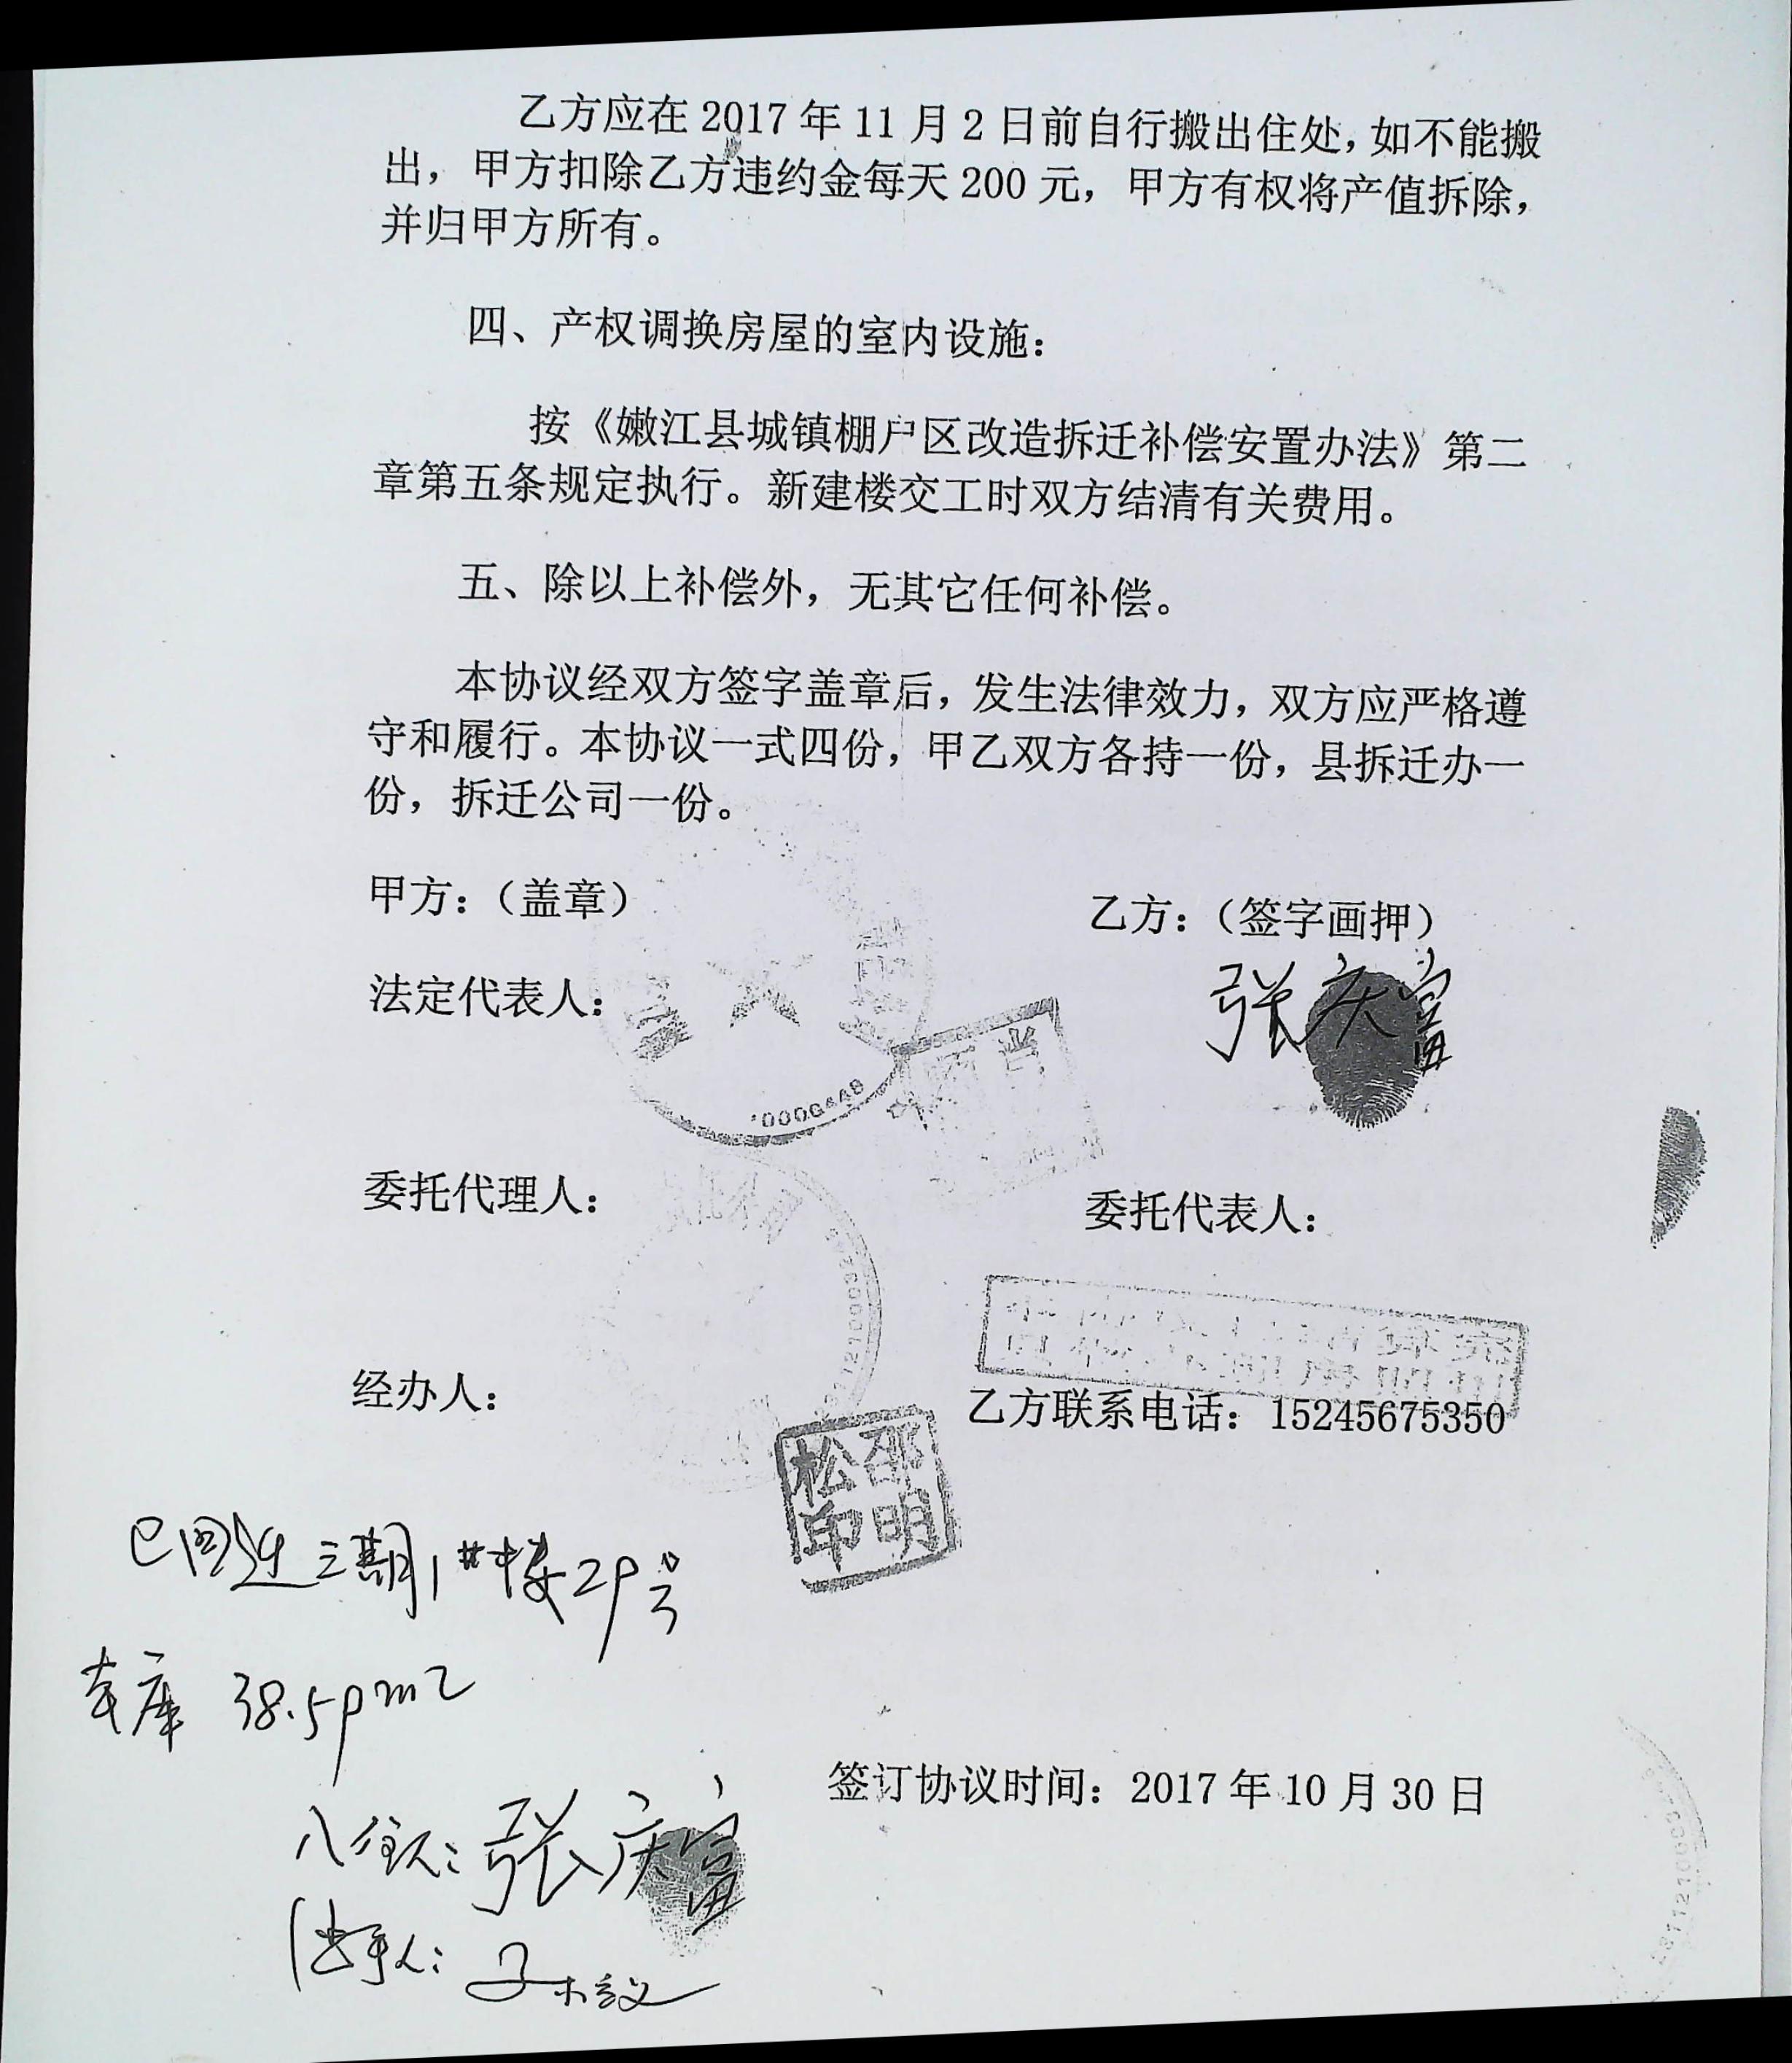 乙方应在 2017 年 11 月 2 日前自行搬出住处，如不能搬
出，甲方扣除乙方违约金每天 200 元，甲方有权将产值拆除，
并归甲方所有。
四、产权调换房屋的室内设施：
按《嫩江县城镇棚户区改造拆迁补偿安置办法》第二
章第五条规定执行。新建楼交工时双方结清有关费用。
五、除以上补偿外，无其它任何补偿。
本协议经双方签字盖章后，发生法律效力，双方应严格遵
守和履行。本协议一式四份，甲乙双方各持一份，县拆迁办一
份，拆迁公司一份。
甲方：（盖章）
乙方：（签字画押）
法定代表人：
张庆富
委托代理人：
委托代表人：
经办人：
乙方联系电话：15245675350
邵明
松印
三期1#楼29号
车库 38.59m2
签订协议时间：2017 年 10 月 30 日
张庆富